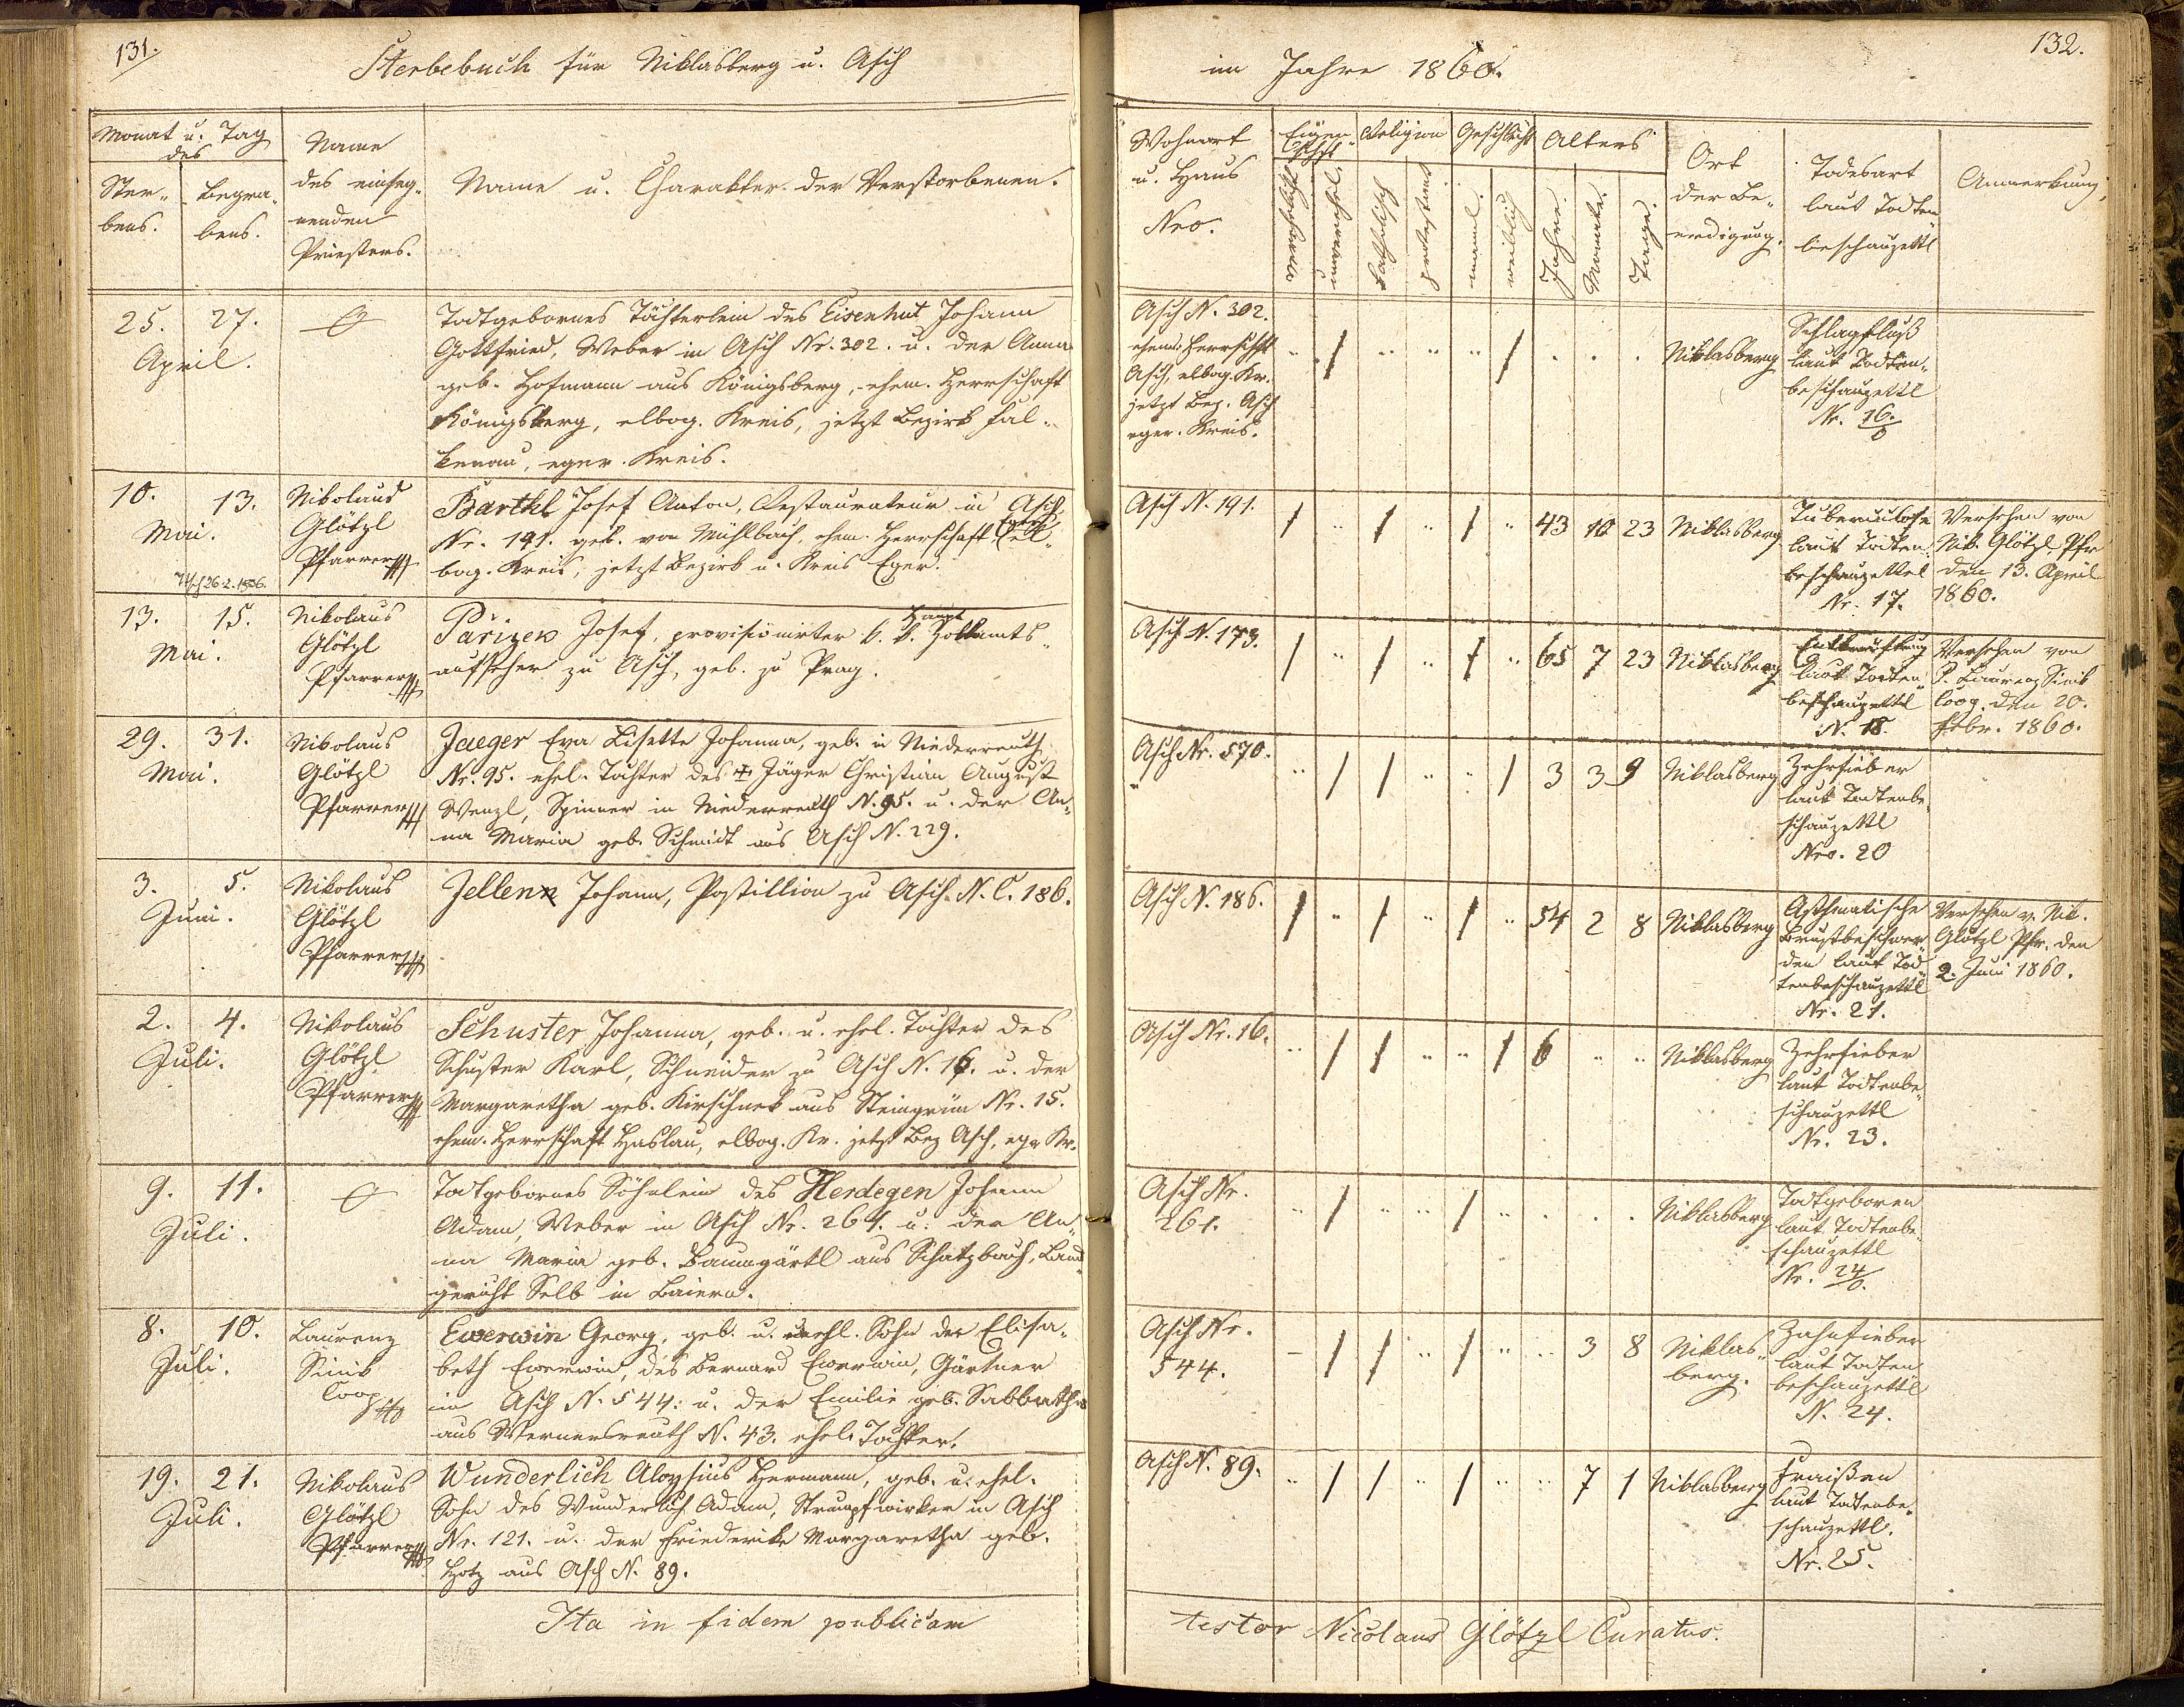 131.
Sterbebuch für Niklasberg u. Asch
Monat u. Tag
des
Ster-
bens.
Begra-
bens.
Name
des einseg-
nenden
Priesters.
Name u. Charakter der Verstorbenen.
25. 27.
April.
Todtgebornes Töchterlein des Eisenhut Johann
Gottfried, Weber in Asch Nr. 302. u. der Anna
geb. Hofmann aus Königsberg, ehem. Herrschaft
Königsberg, elbog. Kreis, jetzt Bezirk Fal-
kenau, eger. Kreis.
10. 13.
Mai.
26.2.1936.
Nikolaus
Glötzl
Pfarrer
Barthl Josef Anton, Restaurateur in Asch
Nr. 191. geb. von Mühlbach, ehem. Herrschaft Eger, El-
bog. Kreis, jetzt Bezirk u. Kreis Eger.
13. 15.
Mai.
Nikolaus
Glötzl
Pfarrer
Pařizek Josef, provisionirter k. k. Haupt Zollamts
aufseher zu Asch, geb. zu Prag.
29. 31.
Mai.
Nikolaus
Glötzl
Pfarrer
Jaeger Eva Lisette Johanna, geb. in Niederreuth
Nr. 95. ehel. Tochter des + Jäger Christian August
Wenzl, Spinner in Niederreuth N. 95. u. der An-
na Maria geb. Schmidt aus Asch N. 229.
3. 5.
Juni.
Nikolaus
Glötzl
Pfarrer
Jellen Johann, Postillion zu Asch N. C. 186.
2. 4.
Juli.
Nikolaus
Glötzl
Pfarrer
Schuster Johanna, geb. u. ehel. Tochter des
Schuster Karl, Schneider zu Asch N. 16. u. der
Margaretha geb. Kirschnek aus Steingrün Nr. 15.
ehem. Herrschaft Haslau, elbog. Kr. jetzt Bez Asch, eger Kr.
9. 11.
Juli.
Todtgebornes Söhnlein des Herdegen Johann
Adam, Weber in Asch Nr. 261. u. der An-
na Maria geb. Baumgärtl aus Schatzbach, Land-
gericht Selb in Baiern.
8. 10.
Juli.
Laurenz
Sinik
Coop
Ewerwin Georg, geb. u. unehl. Sohn der Elisa-
beth Ewerwin, des Bernard Ewerwin, Gärtner
in Asch N. 544. u. der Emilie geb. Sabbath
aus Wernersreuth N. 43. ehel. Tochter.
19. 21.
Juli.
Nikolaus
Glötzl
Pfarrer
Wunderlich Aloysius Hermann, geb. u. ehel.
Sohn des Wunderlich Adam, Strumpfwirker in Asch
Nr. 121. u. der Friederike Margaretha geb.
Hotz aus Asch N. 89.
Ita in fidem publicam
im Jahre 1860.
132.
Wohnort
u. Haus
Nro.
Eigen-
schft
verehelicht
unverehel.
Religion
katholisch
protestant
Geschlecht
männl.
weiblich
Alters
Jahre.
Monate.
Tage.
Ort
der Be-
erdigung.
Todesart
laut Todten
beschauzettl
Anmerkung
Asch N. 302.
ehem. Herrschft
Asch, elbog. Kr.
jetzt Bez. Asch
eger. Kreis.
" / " " " / . . . Niklasberg
Schlagfluß
laut Todten-
beschauzettl
Nr. 16/0
Asch N. 191.
/ " / " / " 43 10 23 Niklasberg
Tuberculose
laut Todten
beschauzettel
Nr. 17.
Versehen von
Nik. Glötzl Pfr
den 13. April
1860.
Asch N. 173.
/ " / " / " 65 7 23 Niklasberg
Entkräftung
laut Todten
beschauzettl
N. 18.
Versehen von
P. Laurenz Sinik
Coop. den 20.
Febr. 1860.
Asch Nr. 570.
" / / " " / 3 3 9 Niklasberg
Zehrfieber
laut Todtenbe-
schauzettl
Nro. 20
Asch N. 186.
/ " / " / " 54 2 8 Niklasberg
Asthmatische
Brustbeschwer-
den laut Tod
tenbeschauzettl
Nr. 21.
Versehen v. Nik.
Glötzl Pfr. den
2. Juni 1860.
Asch Nr. 16.
" / / " " / 6 " " Niklasberg
Zehrfieber
laut Todtenbe-
schauzettl
Nr. 23.
Asch Nr.
261.
" / " " / " . . . Niklasberg
Todtgeboren
laut Todtenbe-
schauzettl
Nr. 24/0.
Asch Nr.
544.
- / / " / " " 3 8 Niklas-
berg.
Zahnfieber
laut Todten
beschauzettl
N. 24.
Asch N. 89.
" / / " / " " 7 1 Niklasberg
Fraißen
laut Todtenbe-
schauzettl.
Nr. 25.
testor Nicolaus Glötzl Curatus.